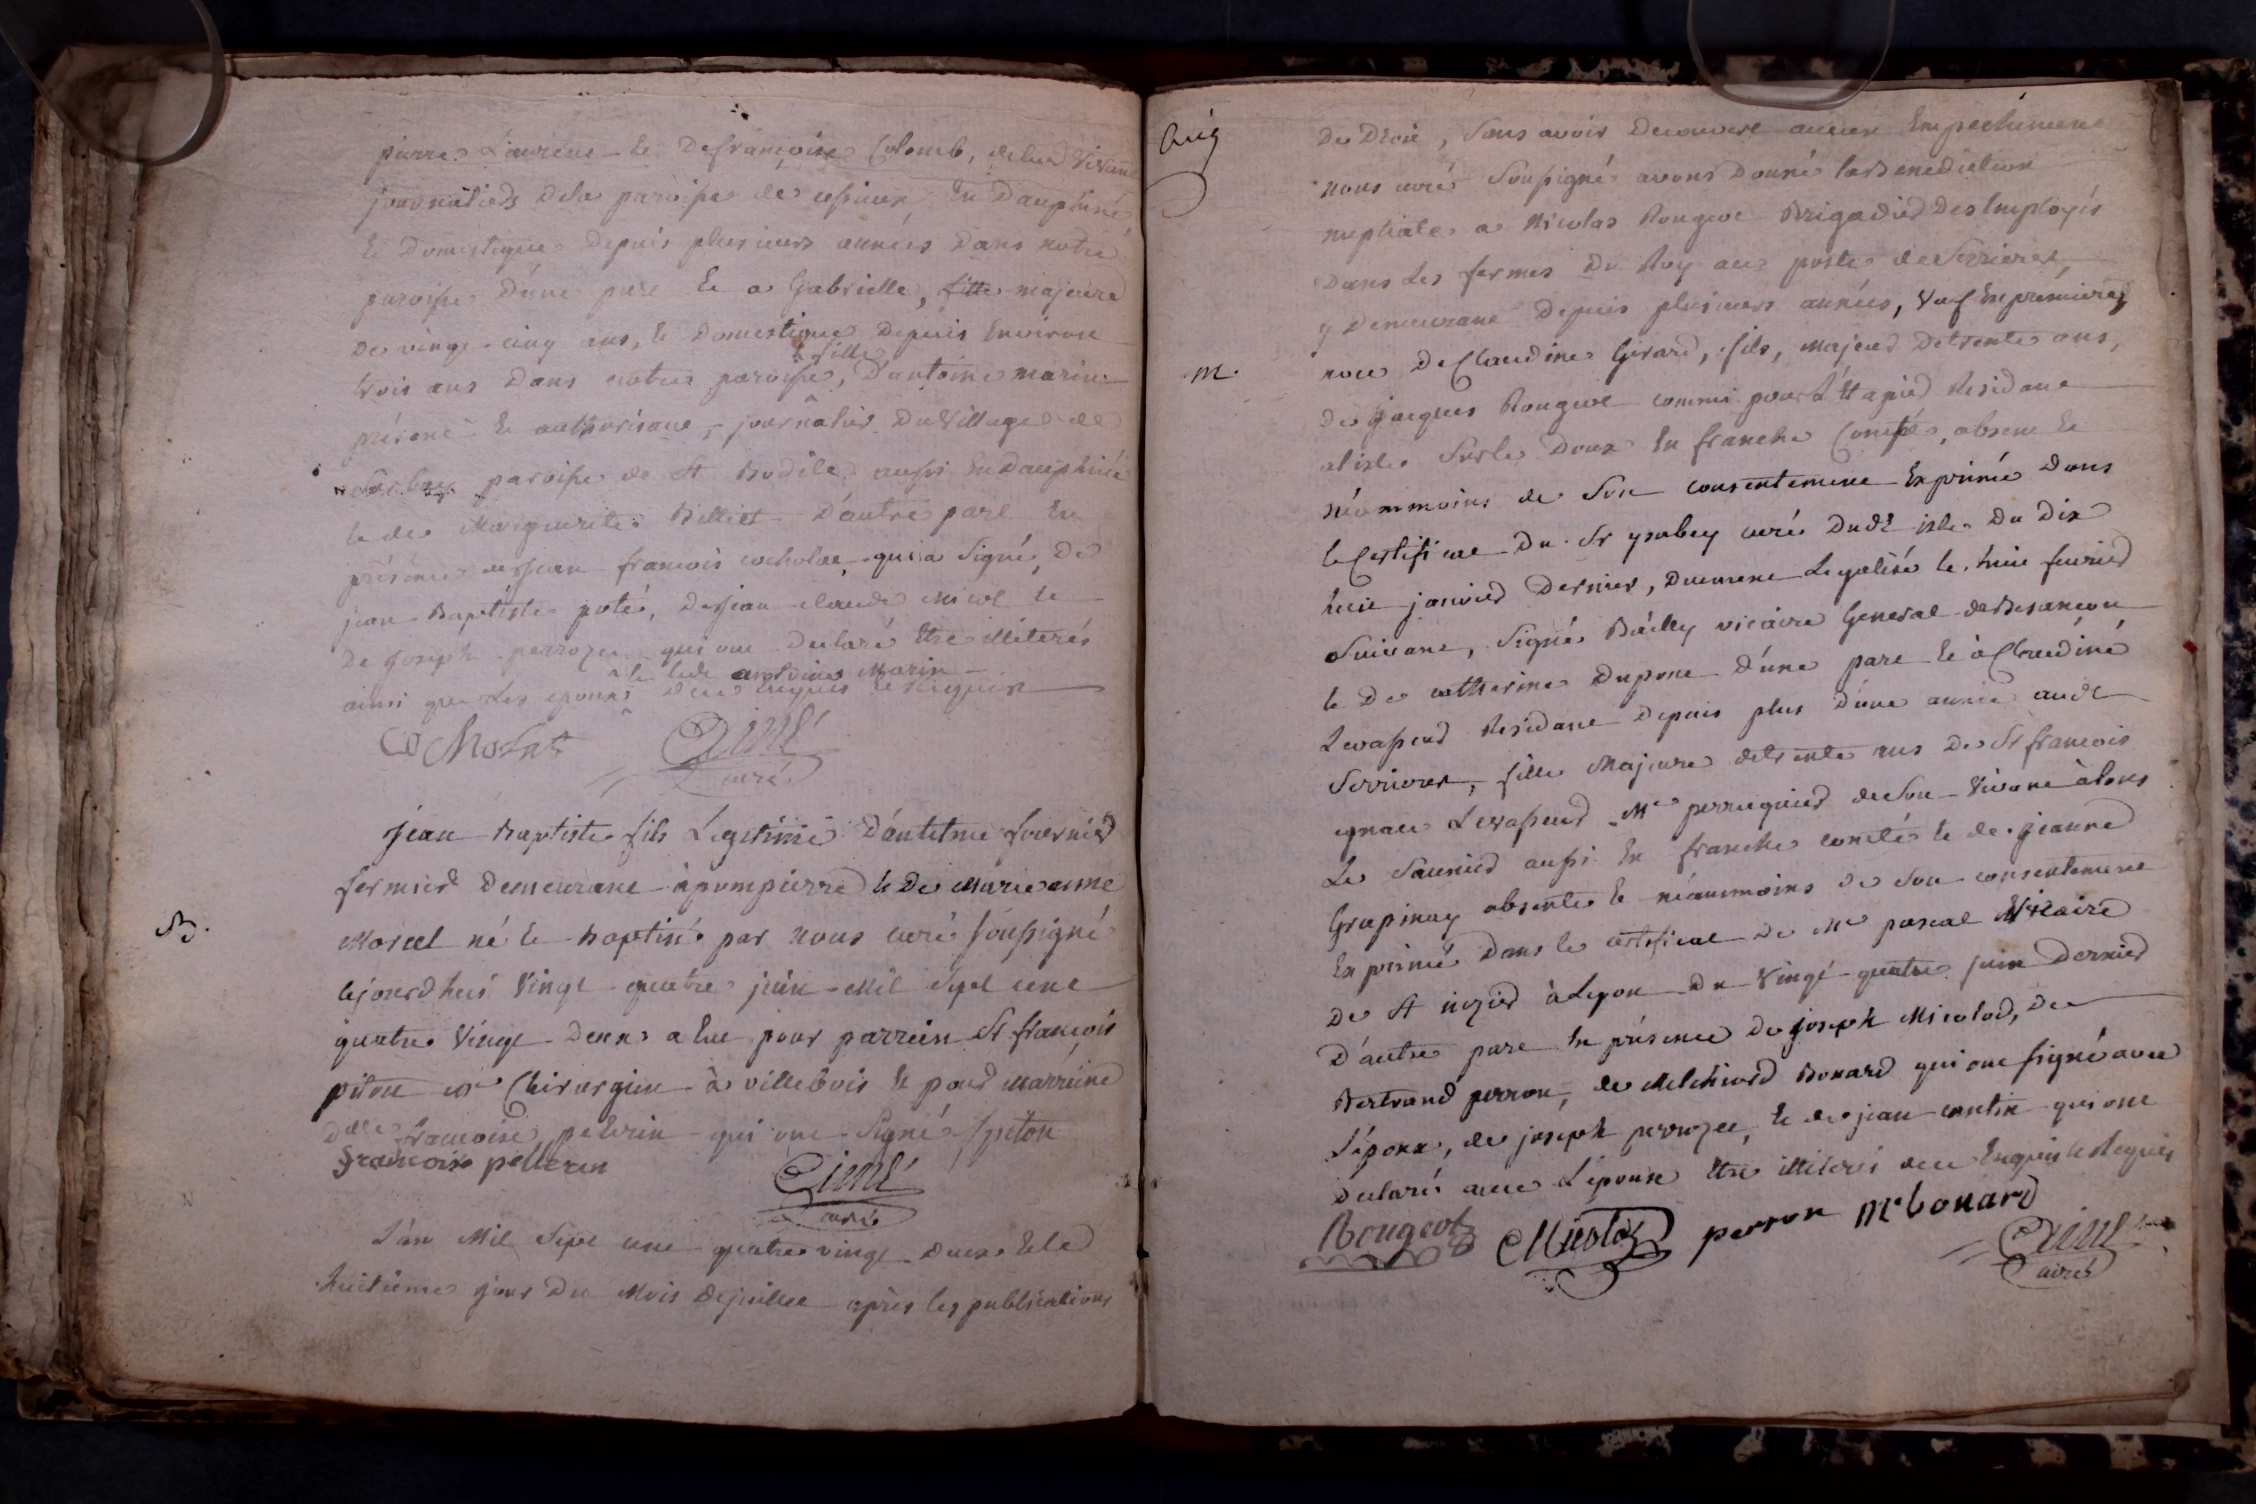 pierre Laurent et de françoise Colomb, de leur vivant
journaliers de la paroisse de cessieux, en Dauphiné
et Domestique depuis plusieurs années dans notre
paroisse d'une part et a Gabrielle, fille majeure
de vingt cinq ans, et domestique depuis environ
trois ans dans notre paroisse, fille d'antoine marin
présent et authorisant, journalier du village de
paroisse de St Bodile aussi en Dauphiné
et de Marguerite Belliet d'autre part en
présence de jean françois cocholat, qui a signé, de
jean Baptiste poté, de jean claude nicol et
de joseph perrozet qui ont declaré être illiterés
ainsi que les epoux et led antoine Marin de ce enquis et requis
Aimé
curé
jean Baptiste fils Legitime d'antelme fournier
fermier demeurant a pompierre et de Marie anne
Morcel né et baptisé par nous curé soussigné
cejourd'hui vingt quatre juin Mil sept cent
quatre vingt deux a eut pour parrein Sr françois
piton Mre Chirurgien à villebois et pour marreine
Dlle francoise pelerin qui ont signé fpiton
B.
françoise pellerin
Aimé
curé
L'an Mil sept cent quatre vingt deux et le
huitieme jour du Mois de juillet après les publications
M.
de Droit, sans avoir decouvert aucun Empechement
nous curé soussigné avons donné la Benediction
nuptiale a Nicolas Rougeot Brigadier des Employés
dans les fermes du Roy au poste de Serrieres,
y demeurant depuis plusieurs années, veuf en premieres
noces de Claudine Girard, fils, majeur de trente ans,
de jacques Rougeot commis pour L'Etapier Residant
alisle sur le Doux en franche Comté, absent et
néammoins de son consentement Exprimé dans
le Certificat du Sr ysabey curé dudt isle du Dix
huit janvier dernier, duement Legalisé le huit fevrier
suivant, signé Bailly vicaire General de Besançon
et de catherine Dupont d'une part et à Claudine
Levasseur Residant depuis plus d'une année audt
Serrieres, fille Majeure de trente ans de Sr francois
ignace Levasseur Me perruquier de son vivant à Lons
Le Saunier aussi en franche comté et de jeanne
Grapinay absente et néanmoins de son consentement
Exprimé dans le certificat de Mr pascal Vicaire
de St nizier à Lyon du vingt quatre juin dernier
d'autre part en présence de joseph Micolod, de
Bertrand perron, de Melchiord Bonard qui ont signé avec
L'époux, de joseph perrozet, et de jean contin qui ont
declaré avec L'epouse être illiterés de ce Enquis et Requis
Rougeot perron Mr bonard
Aimé
curé